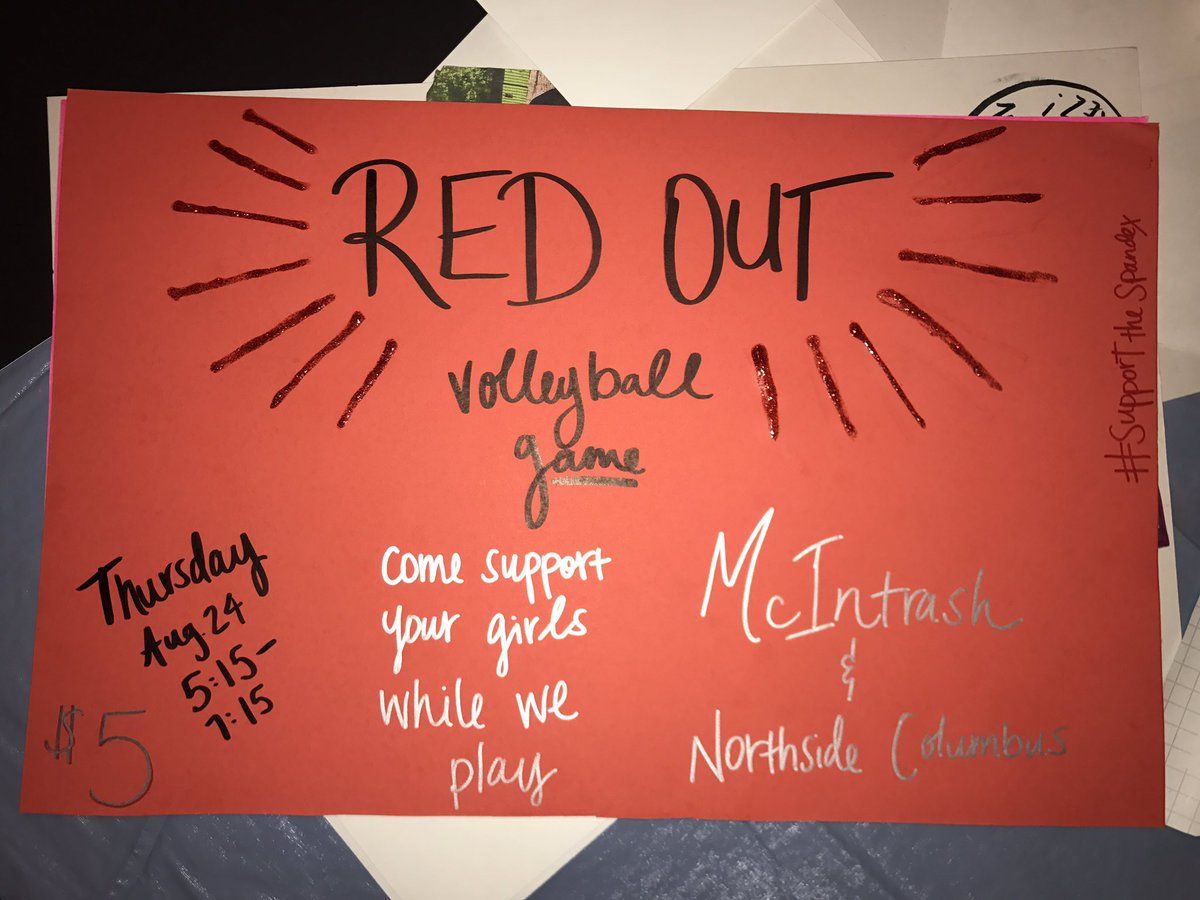 RED OUT
volleyball
game
Thursday
Aug. 24
5:15-
7:15
$5
come support
your girls
while we
play
McIntrash
&
Northside Columbus
#Support the Spandex